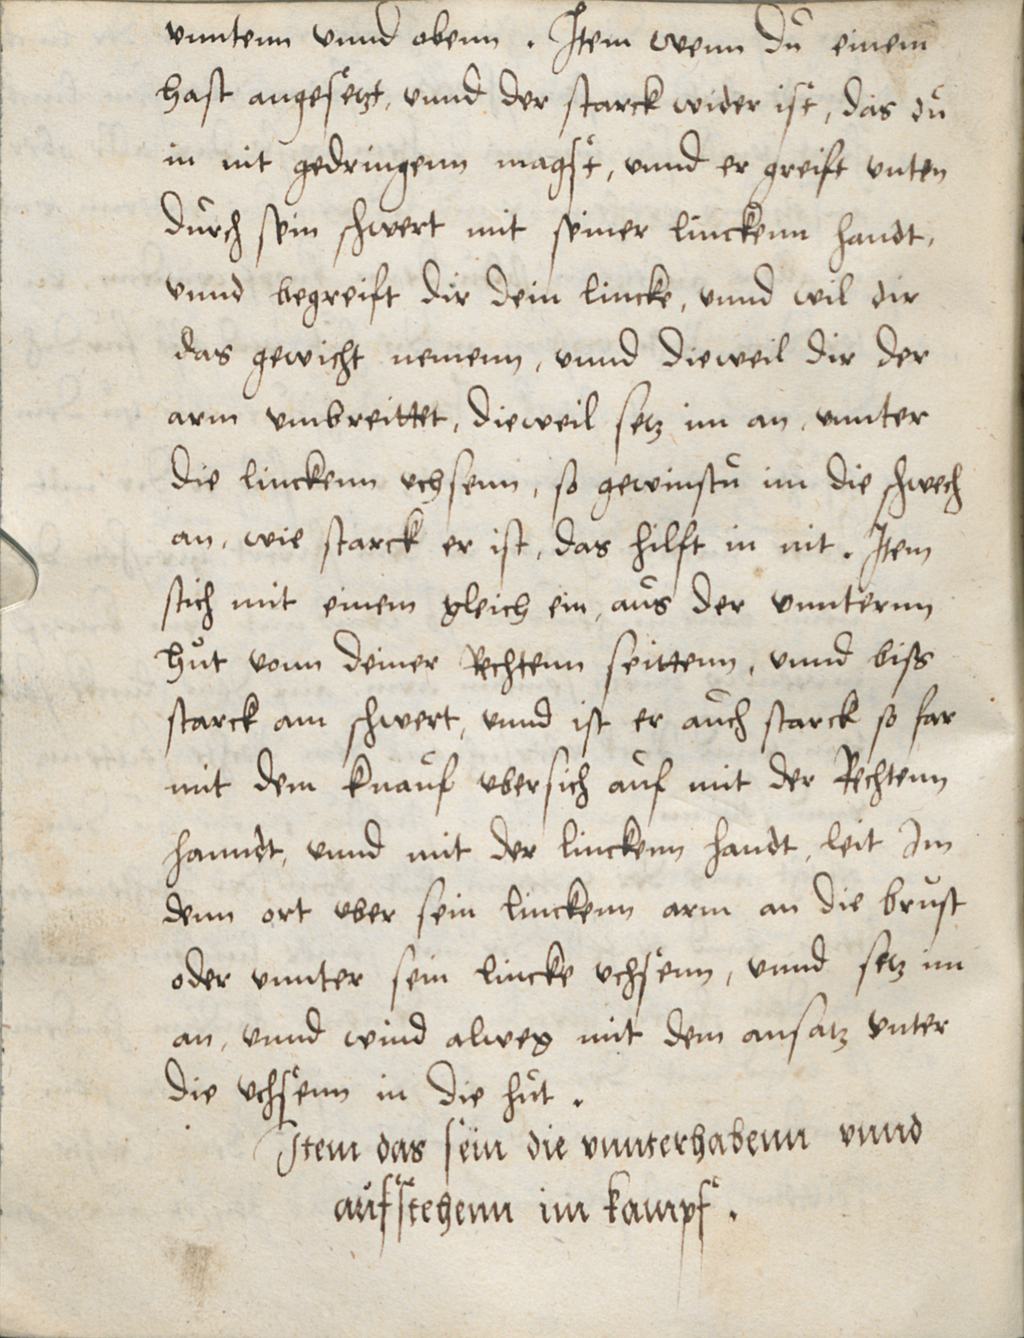 vnntenn vnnd obenn . Item wenn dŭ einem
hast angesetzt, vnnd der starck wider ist, das dŭ
in nit gedringenn magst, vnnd er greift vnten
dŭrch sein schwert mit seiner linckenn handt,
vnnd begreift dir dein lincke, vnnd wil dir
das gewicht nemenn, vnnd dieweil dir der
arm vmbreittet, dieweil setz im an, vnnter
die linckenn vchsenn, so gewinstŭ im die schwech
an, wie starck er ist, das hilft in nit. Item
stich mit einem gleich ein, aŭs der vnnternn
hŭt vonn deiner Rechtenn seittenn, vnnd biss
starck am schwert, vnnd ist er aŭch starck so far
mit dem knaŭf vbersich aŭf mit der Rechtenn
hanndt, vnnd mit der linckenn handt, leit Im
denn ort vber sein linckenn arm an die brŭst
oder vnnter sein lincke vchsenn, vnnd setz im
an, vnnd wind alweg mit dem ansatz vnter
die vchsenn in die hŭt .
Item das sein die vnnterhabenn vnnd
aŭfstehenn im kampf .